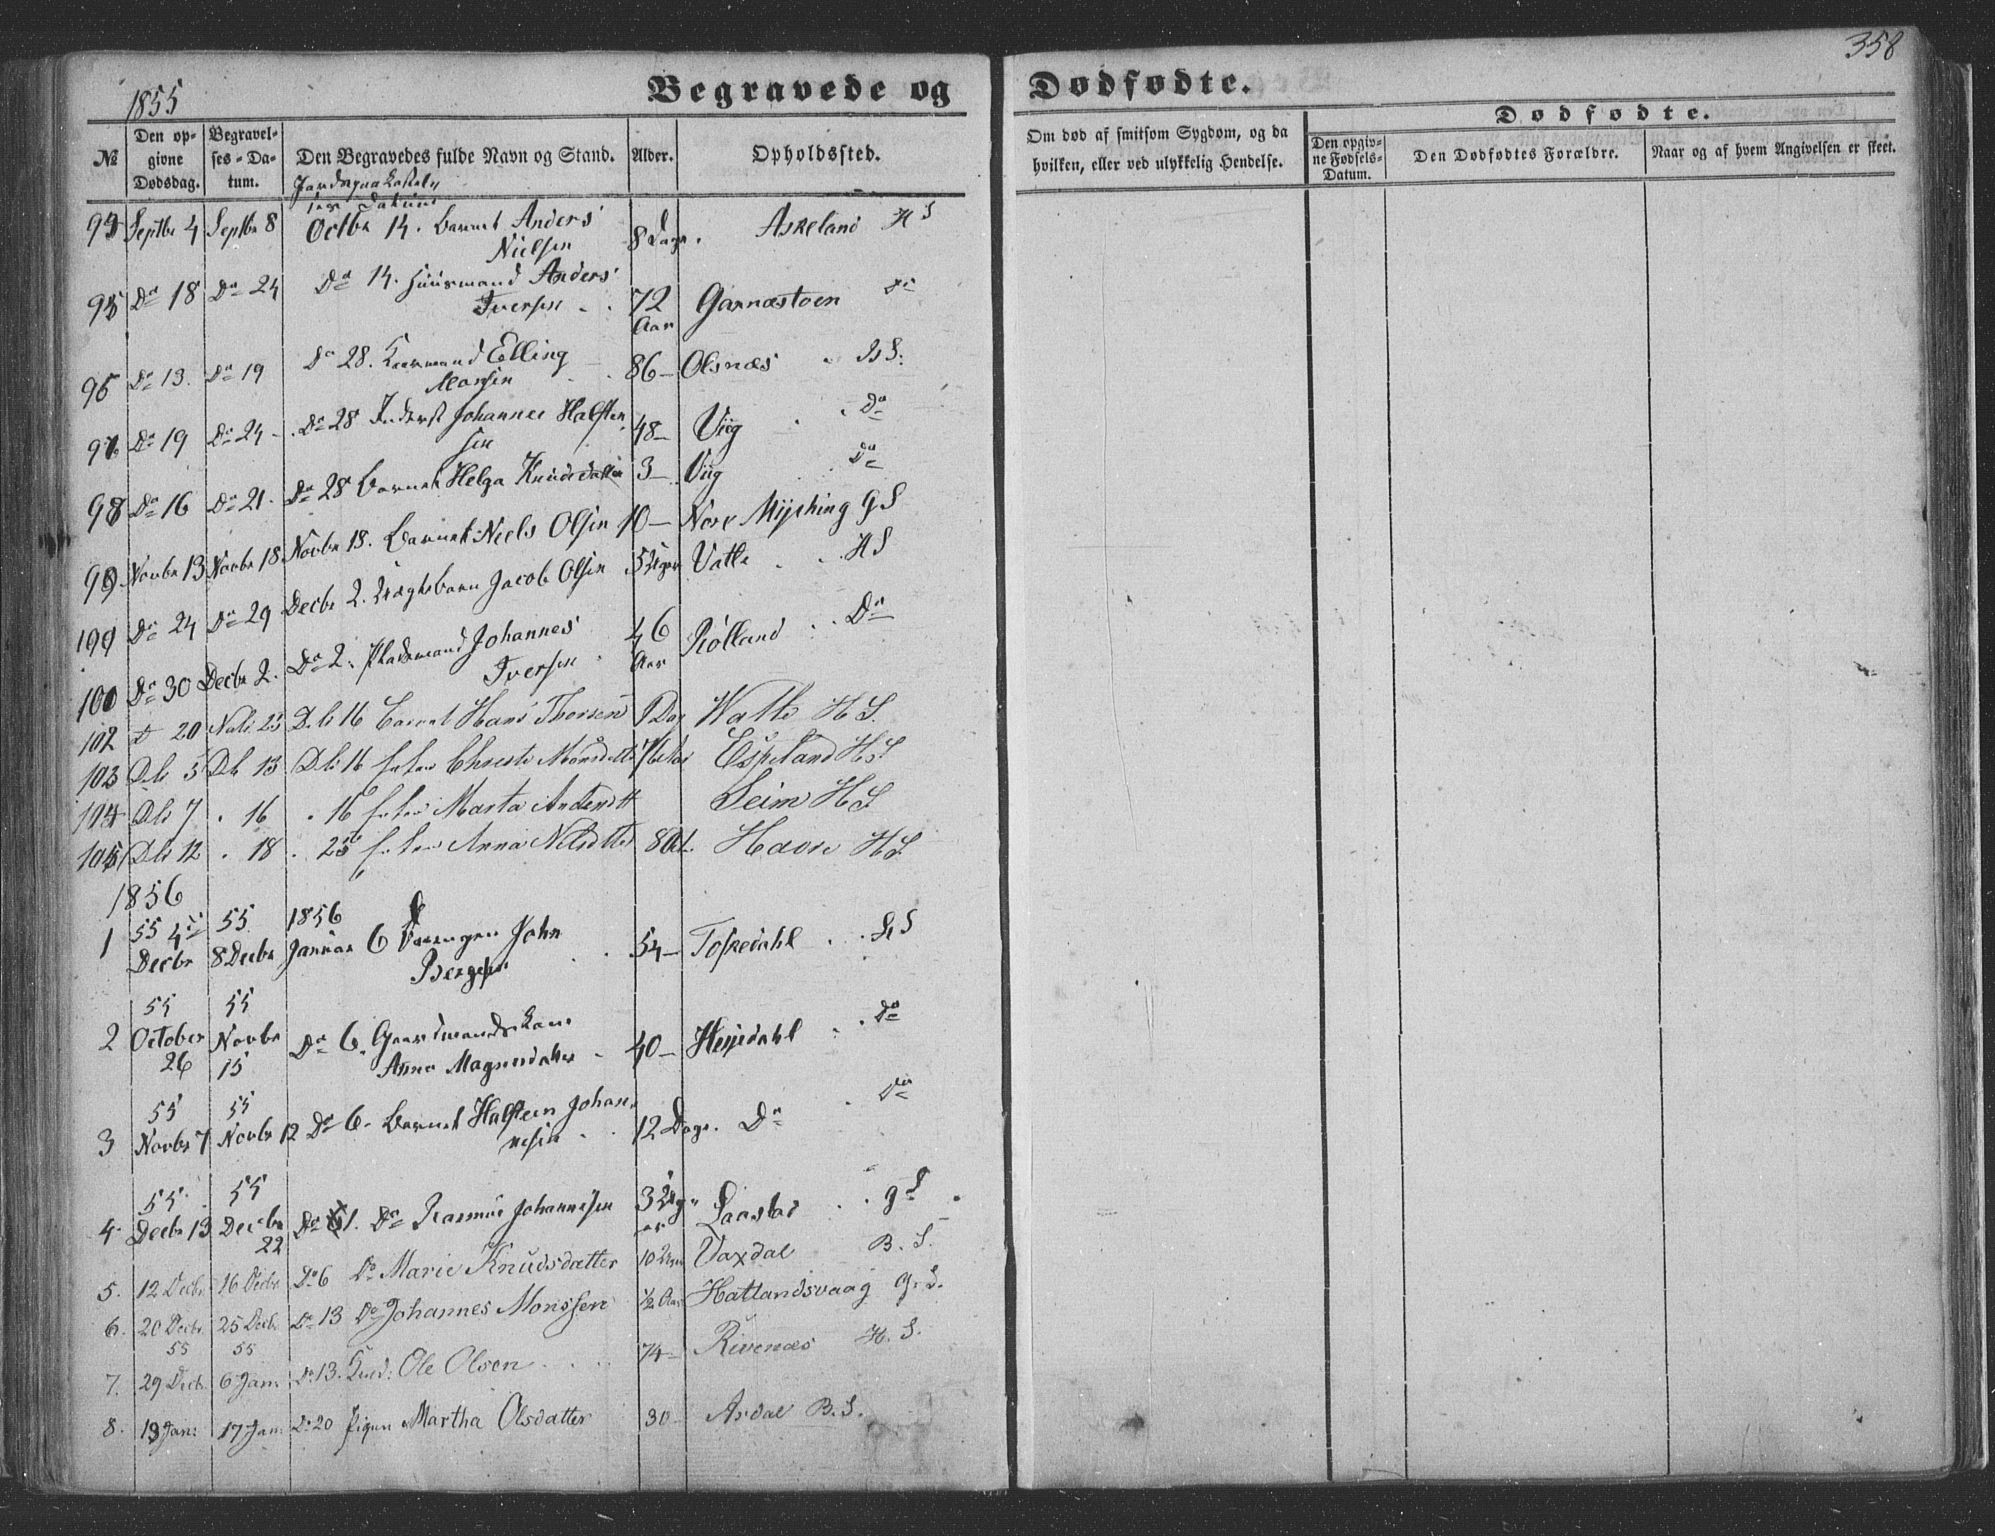 358
1855
Begravede og Dødfødte.
№
Den opgivne Dødsdag.
Begravelses-Datum.
Den Begravedes fulde Navn og Stand.
Alder.
Opholdssted.
Om død af smitsom Sygdom, og da hvilken, eller ved ulykkelig Hendelse.
Dødfødte.
Den opgivne Fødsels-Datum.
Den Dødfødtes Forældre.
Naar og af hvem Angivelsen er skeet.
Jordspaakastelsens Datum
94 Septbr 4 Septbr 8 Octbr 14. Barnet Anders Nielsen 8 Dage. Askeland H S
95 Do 18 Do 24 Do 14. Huusmand Anders Iversen 72 Aar Garnæstoen Do
96 Do 13. Do 19 Do 28. Kaarmand Elling Monsen 86 Olsnæs
97 Do 19 Do 24 Do 28 Inderst Johannes Halstensen 48 Viig Do
98 Do 16 Do 21. Do 28 Barnet Helga Knudsdatter 3 Viig Do
99 Novbr 13 Novbr 18 Novbr 18. Barnet Niels Olsen 10 Nore Myshing G S
Do 24 Do 29 Decbr 2. Barn Jacob Olsen 5 Uger Vatle H S
Do 30 Decbr 2. Do 2. Pladsmand Johannes Iversen 46 Aar Rölland Do
102 20 Nov. 25 Db 16 Barnet Hans Thorsen 1 Dag Watle H S.
103 Db 5 Db 13 Db 16 Enken Christi Monsdatter Espeland H S
104 Db 7 16 16 Enken Marta Andersdtt Seim H S
105 Db 12 18 26 Enken Anna Nilsdtter 80 Havre H S.
1856
1 55 4 Decbr 55 8 Decbr 1856 Januar 6 John Bergesen 54 Toskedahl S
2 55 October 26 55 Novbr 15 Do 6. Gaardmandskone Anna Magnesdatter 40 Hesjedahl Do
3 55 Novbr 7 55 Novbr 12 Do 6. Barnet Halsteen Johannesen 12 Dage. Do Do
4. 55 Decbr 13 55 Decbr 22 Do Do Rasmus Johannesen 3 Uger Laastad G S
5. 12 Decbr. 16 Decbr Do 6 Do Marie Knudsdatter 10 Vaxdal B. S.
6. 20 Decbr. 25 Decbr. Do 13 Do Johannes Monssen 1/2 Aar Hatlandsvaag G. S.
7. 55 29 Decb. 55 6 Jan: Do 13. Ole Olsen 74 Rivenæs H. S.
8. 13 Jan: 17 Jan: Do 20 Pigen Martha Olsdatter 30 Asdal B. S.